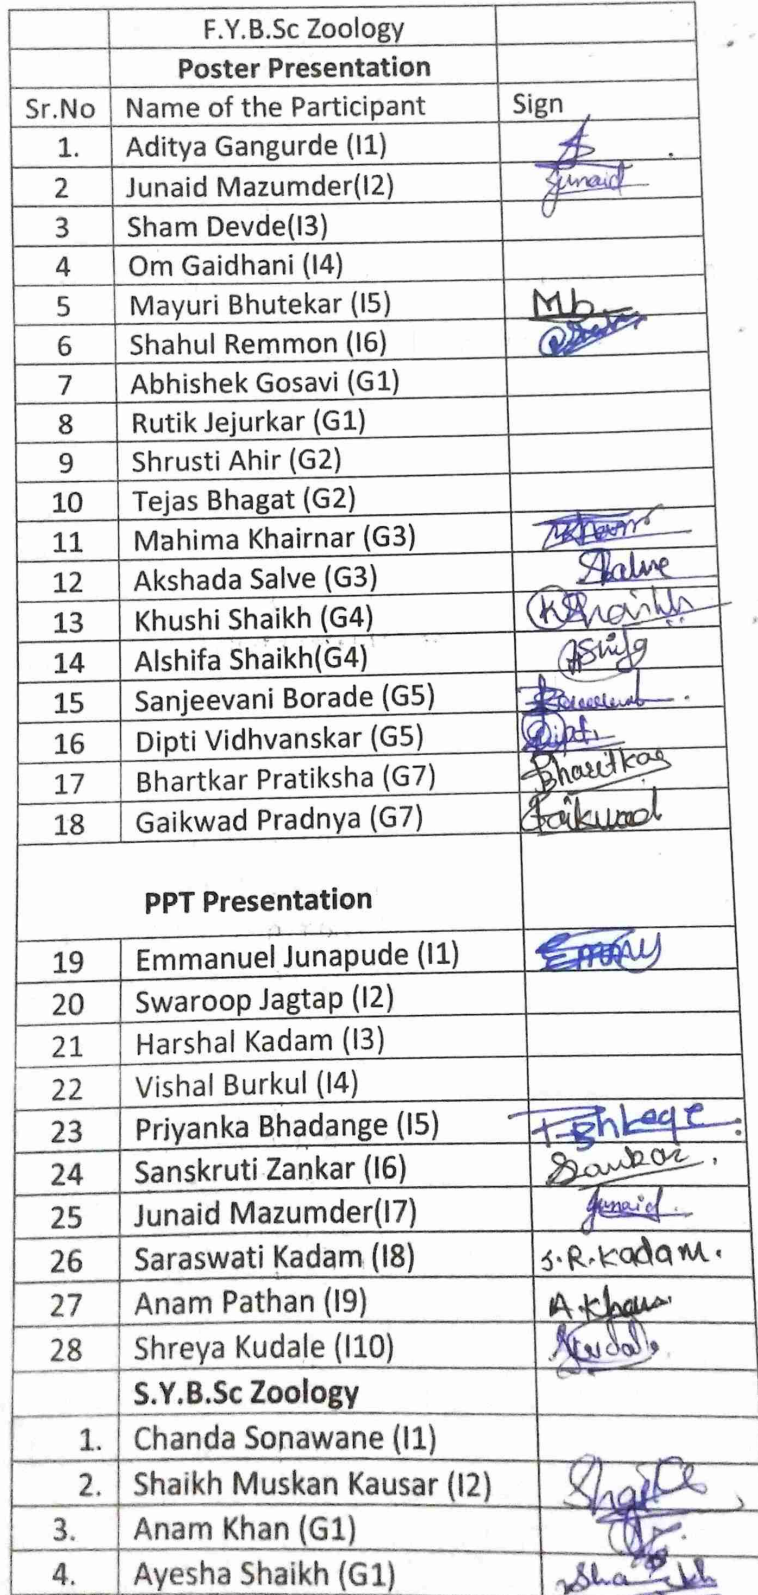 F.Y.B.Sc Zoology
Poster Presentation
Sr.No Name of the Participant Sign
1. Aditya Gangurde (I1)
2 Junaid Mazumder(I2) Junaid
3 Sham Devde(I3)
4 Om Gaidhani (I4)
5 Mayuri Bhutekar (I5) Mb
6 Shahul Remmon (I6)
7 Abhishek Gosavi (G1)
8 Rutik Jejurkar (G1)
9 Shrusti Ahir (G2)
10 Tejas Bhagat (G2)
11 Mahima Khairnar (G3)
12 Akshada Salve (G3) Salve
13 Khushi Shaikh (G4) KShaikh
14 Alshifa Shaikh(G4)
15 Sanjeevani Borade (G5)
16 Dipti Vidhvanskar (G5) Dipti
17 Bhartkar Pratiksha (G7) Bharitkar
18 Gaikwad Pradnya (G7) Gaikwad
PPT Presentation
19 Emmanuel Junapude (I1) Emmy
20 Swaroop Jagtap (I2)
21 Harshal Kadam (I3)
22 Vishal Burkul (I4)
23 Priyanka Bhadange (I5)
24 Sanskruti Zankar (I6)
25 Junaid Mazumder(I7) Junaid
26 Saraswati Kadam (I8) S.R.Kadam.
27 Anam Pathan (I9)
28 Shreya Kudale (I10) Kudale
S.Y.B.Sc Zoology
1. Chanda Sonawane (I1)
2. Shaikh Muskan Kausar (I2)
3. Anam Khan (G1)
4. Ayesha Shaikh (G1)